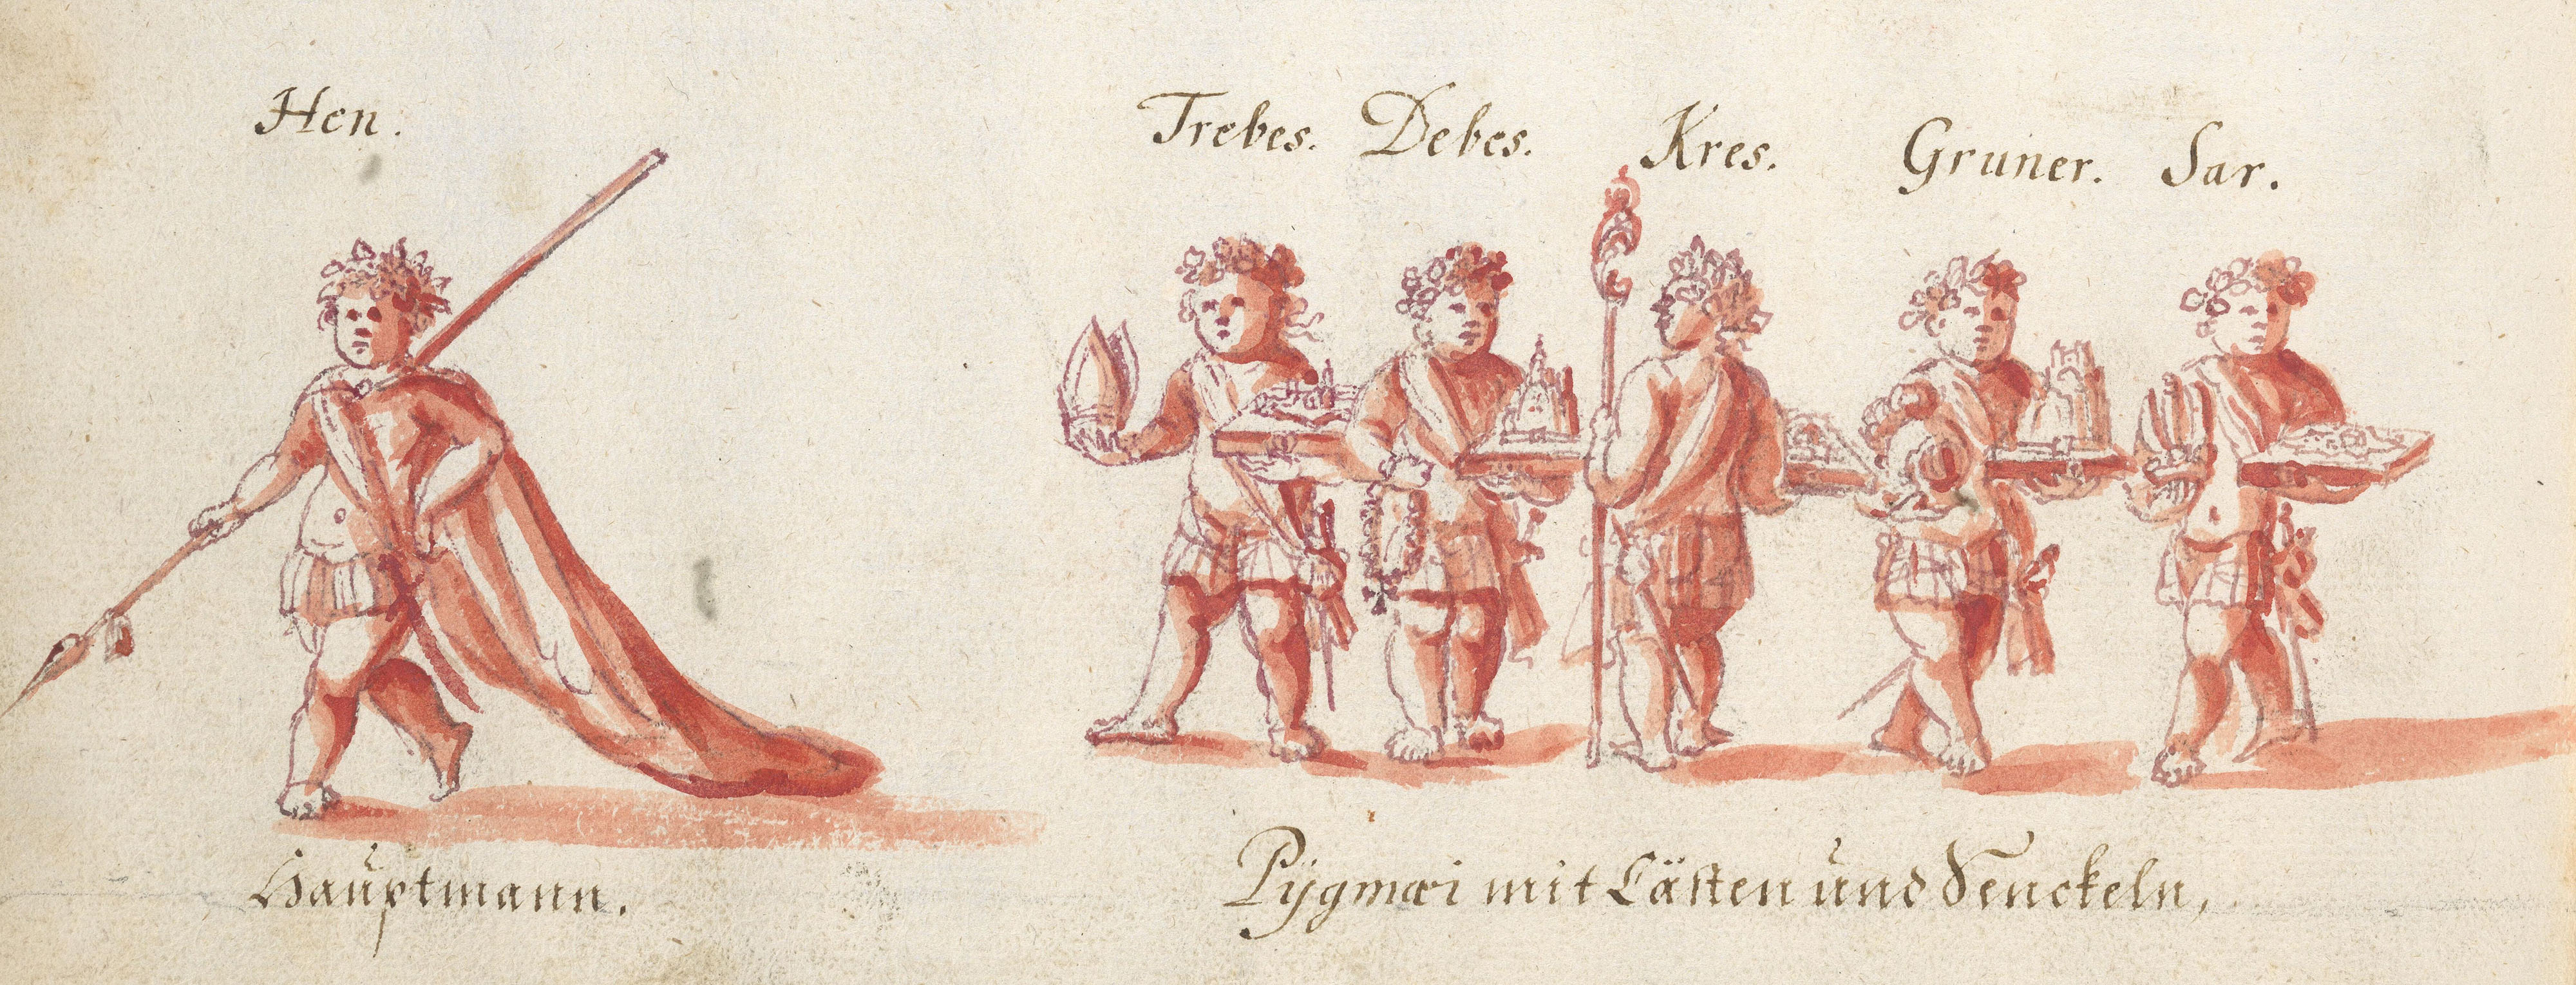 Hen.
Trebes. Debes. Kres. Gruner. Sar.
Hauptmann.
Pÿgmæi mit Cästen und Senckeln,